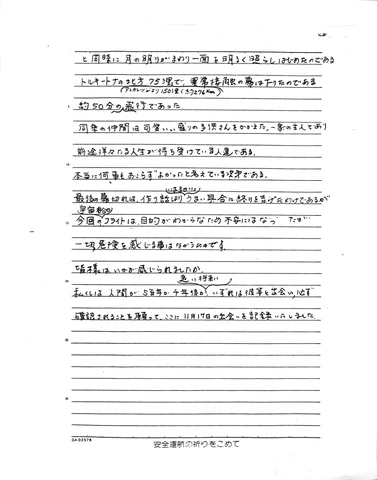 と同時に月の明りがまわり一面を明るく照らしはじめたのである
トルキートナの北方75浬で、異常接触の幕は下りたのである
(アンカレッジより150浬(約276Km)
約50分の飛行であった。
同乗の仲間は可愛い、盛りの子供さんをかかえた、一家の主人であり
前途洋々たる人生が待ち受けている人達である。
本当に何事もおこらずよかったと考えている次第である。
いままでにない
最後の幕切れは、作り話のようなうまい具合に終りを告げたわけであるが
宇宙船の
今回のフライトは、目的がわからなため不安にはなっ たが
一切危険を感じる事はなかったのです。
皆様はいかが感じられましたか。
遠い将来い
私くしは 人間が5百年か千年後か いずれは彼等と出会い、必ず
確認されることを願って、ここに11月17日の出会いを記録いたしました。
GA-02578
安全運航の祈りをこめて